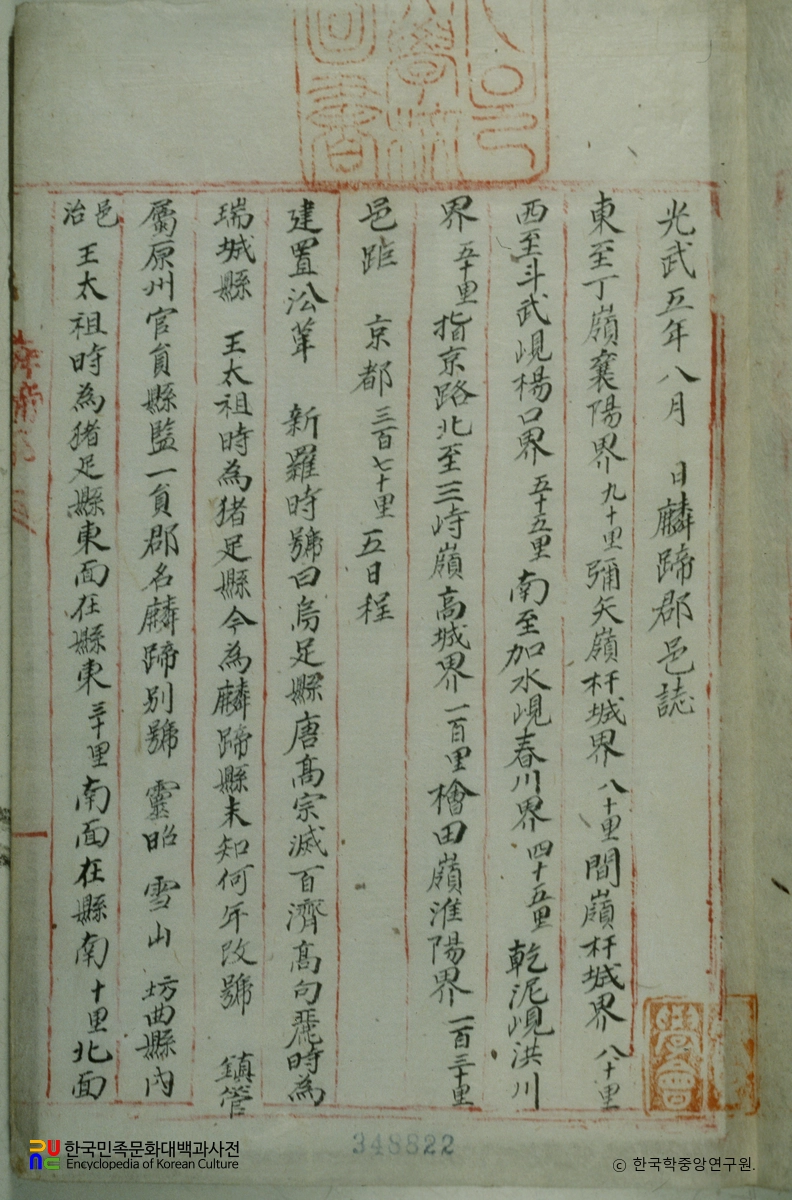 光武五年八月 日麟蹄郡邑誌
東至丁嶺襄陽界九十里彌矢嶺杆城界八十里間嶺杆城界八十里
西至斗武峴楊口界五十五里南至加水峴春川界四十五里乾泥峴洪川
界五十里指京路北至三峙嶺高城界一百里檜田嶺淮陽界一百三十里
邑距 京都三百七十里五日程
建置沿革 新羅時號曰烏足縣唐高宗滅百濟高句麗時為
瑞城縣 王太祖時為猪足縣今為麟蹄縣未知何年改號 鎮管
屬原州官員縣監一員郡名麟蹄別號 靈昭 雪山 坊曲縣內
邑治 王太祖時為猪足縣東面在縣東三十里南面在縣南十里北面
348822
한국민족문화대백과사전
Encyclopedia of Korean Culture
ⓒ 한국학중앙연구원.